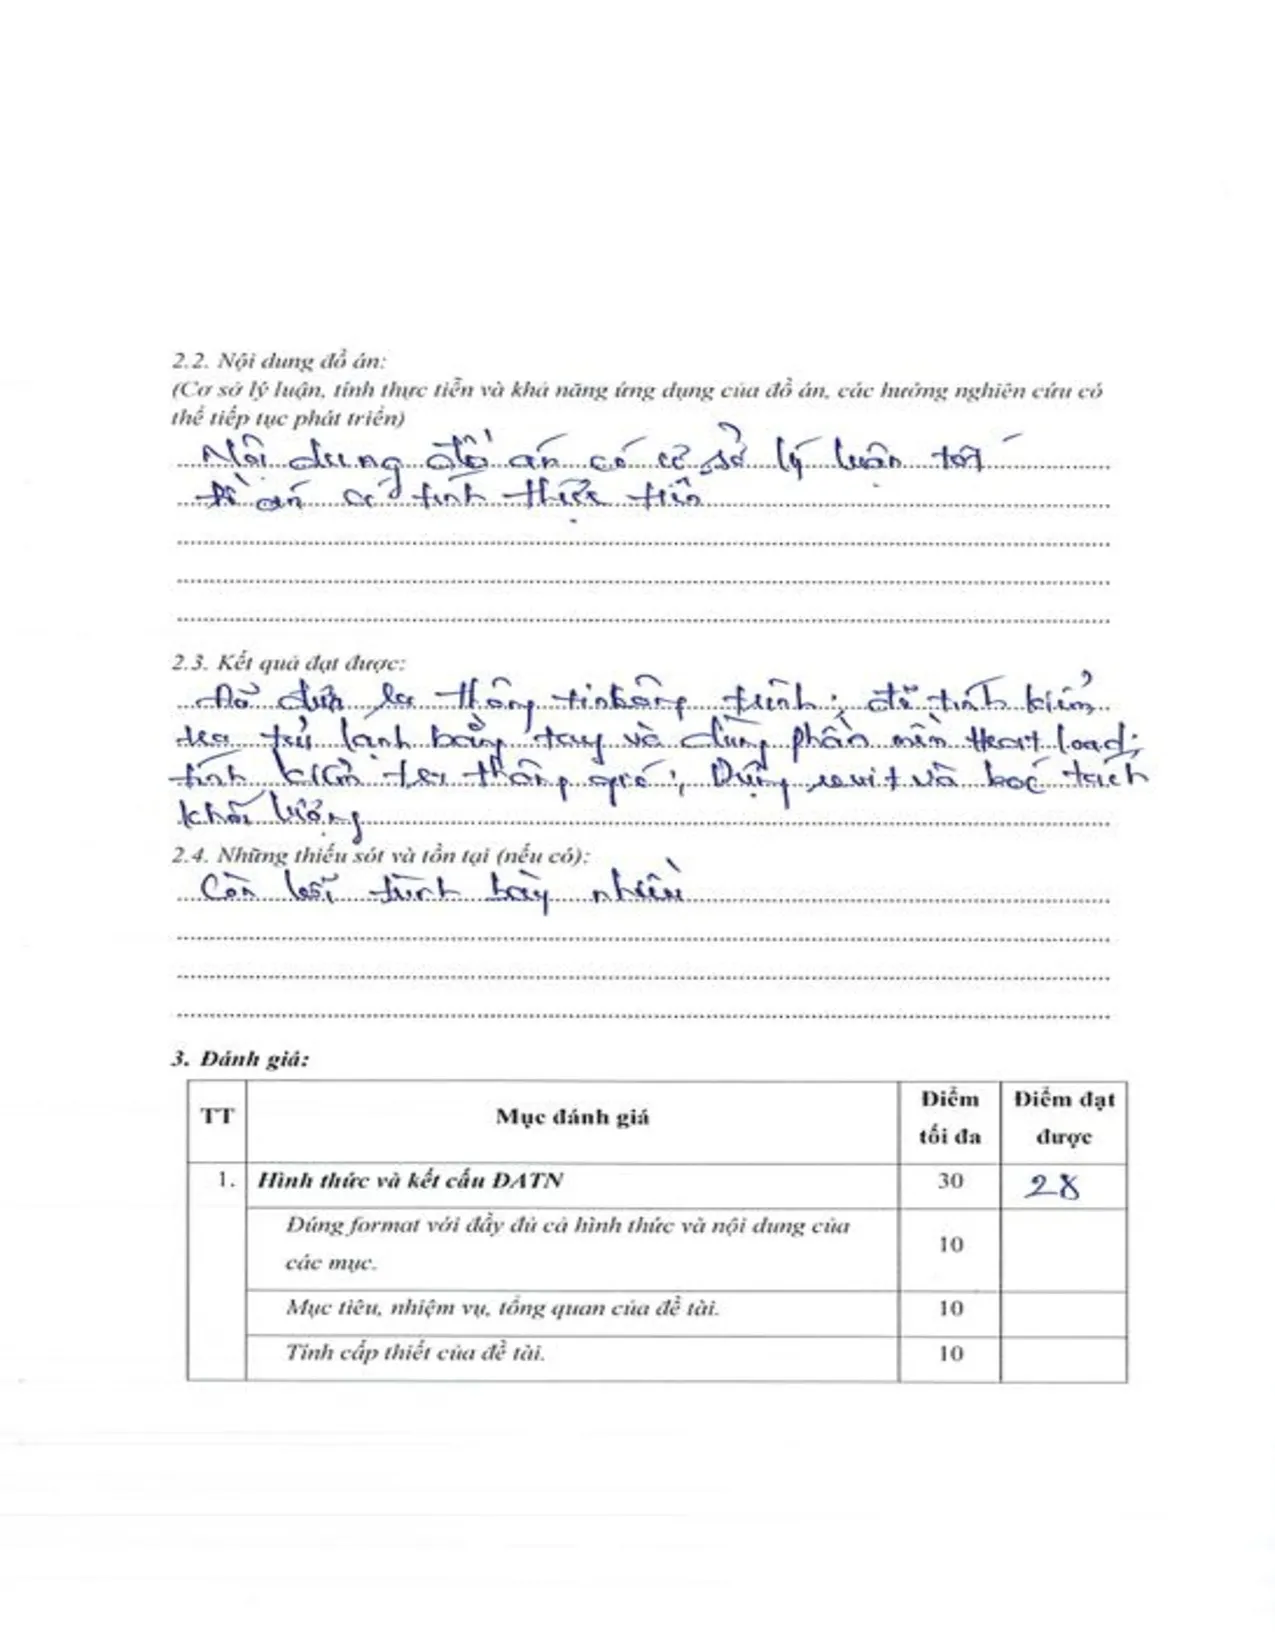 2.2. Nội dung đồ án:
(Cơ sở lý luận, tính thực tiễn và khả năng ứng dụng của đồ án, các hướng nghiên cứu có
thể tiếp tục phát triển)
Nội dung đồ án có cơ sở lý luận tốt
Đồ án có tính thực tiễn
2.3. Kết quả đạt được:
Đã đưa ra thông tin công trình; đã tính kiểm
tra tải lạnh bằng tay và dùng phần mền Heart load;
tính kiểm tra thông gió; Dựng revit và bóc tách
khối lượng
2.4. Những thiếu sót và tồn tại (nếu có):
Còn lỗi trình bày nhiều
3. Đánh giá:
TT Mục đánh giá Điểm tối đa Điểm đạt được
1. Hình thức và kết cấu ĐATN 30 28
Đúng format với đầy đủ cả hình thức và nội dung của
các mục. 10
Mục tiêu, nhiệm vụ, tổng quan của đề tài. 10
Tính cấp thiết của đề tài. 10